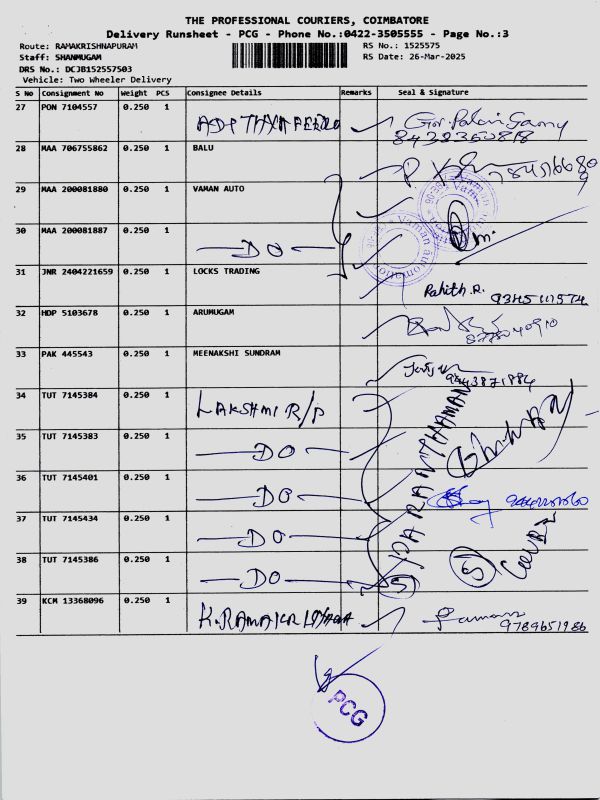 THE PROFESSIONAL COURIERS, COIMBATORE
Delivery Runsheet - PCG - Phone No.:0422-3505555 - Page No.:3
Route: RAMAKRISHNAPURAM
RS No.: 1525575
Staff: SHANMUGAM
RS Date: 26-Mar-2025
DRS No.: DCJB152557503
Vehicle: Two Wheeler Delivery
S No Consignment No Weight PCS Consignee Details Remarks Seal & Signature
27 PON 7104557 0.250 1
28 MAA 706755862 0.250 1 BALU
29 MAA 200081880 0.250 1 VAMAN AUTO
30 MAA 200081887 0.250 1 DO
31 JNR 2404221659 0.250 1 LOCKS TRADING Rahith.R.
32 HDP 5103678 0.250 1 ARUMUGAM
33 PAK 445543 0.250 1 MEENAKSHI SUNDRAM
34 TUT 7145384 0.250 1 LAKSHMI R/P
35 TUT 7145383 0.250 1 DO
36 TUT 7145401 0.250 1 DO
37 TUT 7145434 0.250 1 DO
38 TUT 7145386 0.250 1 DO
PARANTHAMAN
5
5
39 KCM 13368096 0.250 1 9789651986
PCG